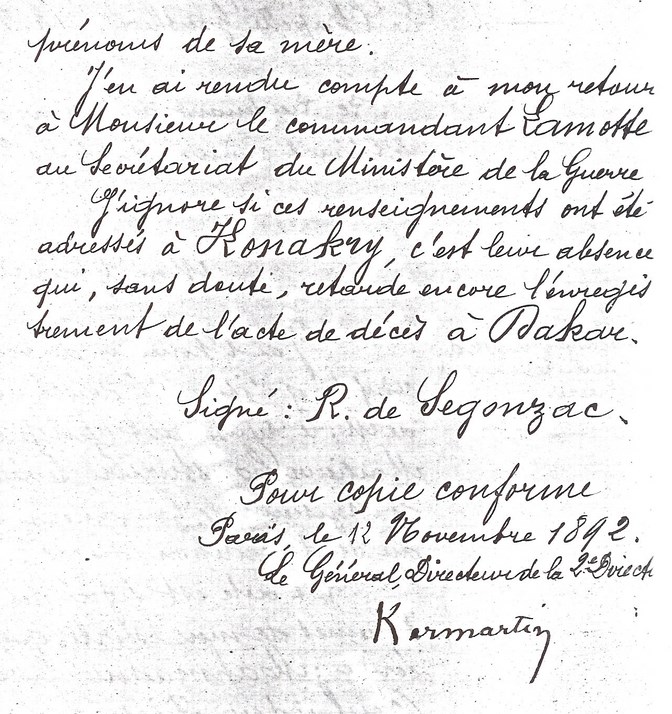 prénoms de sa mère.
J'en ai rendu compte à mon retour
à Monsieur le commandant Lamotte
au Secrétariat du Ministère de la Guerre
J'ignore si ces renseignements ont été
adressés à Konakry, c'est leur absence
qui, sans doute, retarde encore l'enregis
trement de l'acte de décès à Dakar.
Signé : R. de Segonzac.
Pour copie conforme
Paris, le 12 Novembre 1892.
Le Général, Directeur de la 2e Direct
Kermartin